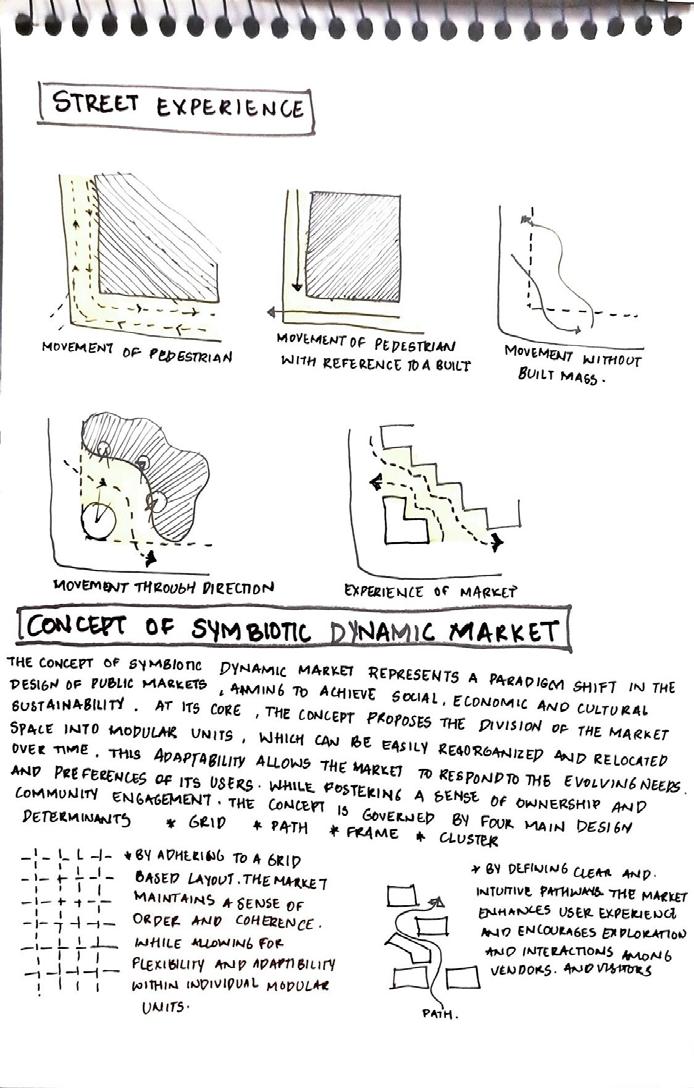 STREET EXPERIENCE
MOVEMENT OF PEDESTRIAN
MOVEMENT OF PEDESTRIAN
WITH REFERENCE TO A BUILT
MOVEMENT WITHOUT
BUILT MASS.
MOVEMENT THROUGH DIRECTION
EXPERIENCE OF MARKET
CONCEPT OF SYMBIOTIC DYNAMIC MARKET
THE CONCEPT OF SYMBIOTIC DYNAMIC MARKET REPRESENTS A PARADIGM SHIFT IN THE
DESIGN OF PUBLIC MARKETS, AIMING TO ACHIEVE SOCIAL, ECONOMIC AND CULTURAL
SUSTAINABILITY. AT ITS CORE, THE CONCEPT PROPOSES THE DIVISION OF THE MARKET
SPACE INTO MODULAR UNITS, WHICH CAN BE EASILY REORGANIZED AND RELOCATED
OVER TIME. THIS ADAPTABILITY ALLOWS THE MARKET TO RESPOND TO THE EVOLVING NEEDS.
AND PREFERENCES OF ITS USERS. WHILE FOSTERING A SENSE OF OWNERSHIP AND
COMMUNITY ENGAGEMENT. THE CONCEPT IS GOVERNED BY FOUR MAIN DESIGN
DETERMINANTS * GRID * PATH * FRAME * CLUSTER
* BY ADHERING TO A GRID
BASED LAYOUT. THE MARKET
MAINTAINS A SENSE OF
ORDER AND COHERENCE.
WHILE ALLOWING FOR
FLEXIBILITY AND ADAPTIBILITY
WITHIN INDIVIDUAL MODULAR
UNITS.
* BY DEFINING CLEAR AND.
INTUITIVE PATHWAYS THE MARKET
ENHANCES USER EXPERIENCE
AND ENCOURAGES EXPLORATION
AND INTERACTIONS AMONG
VENDORS. AND VISITORS
PATH.